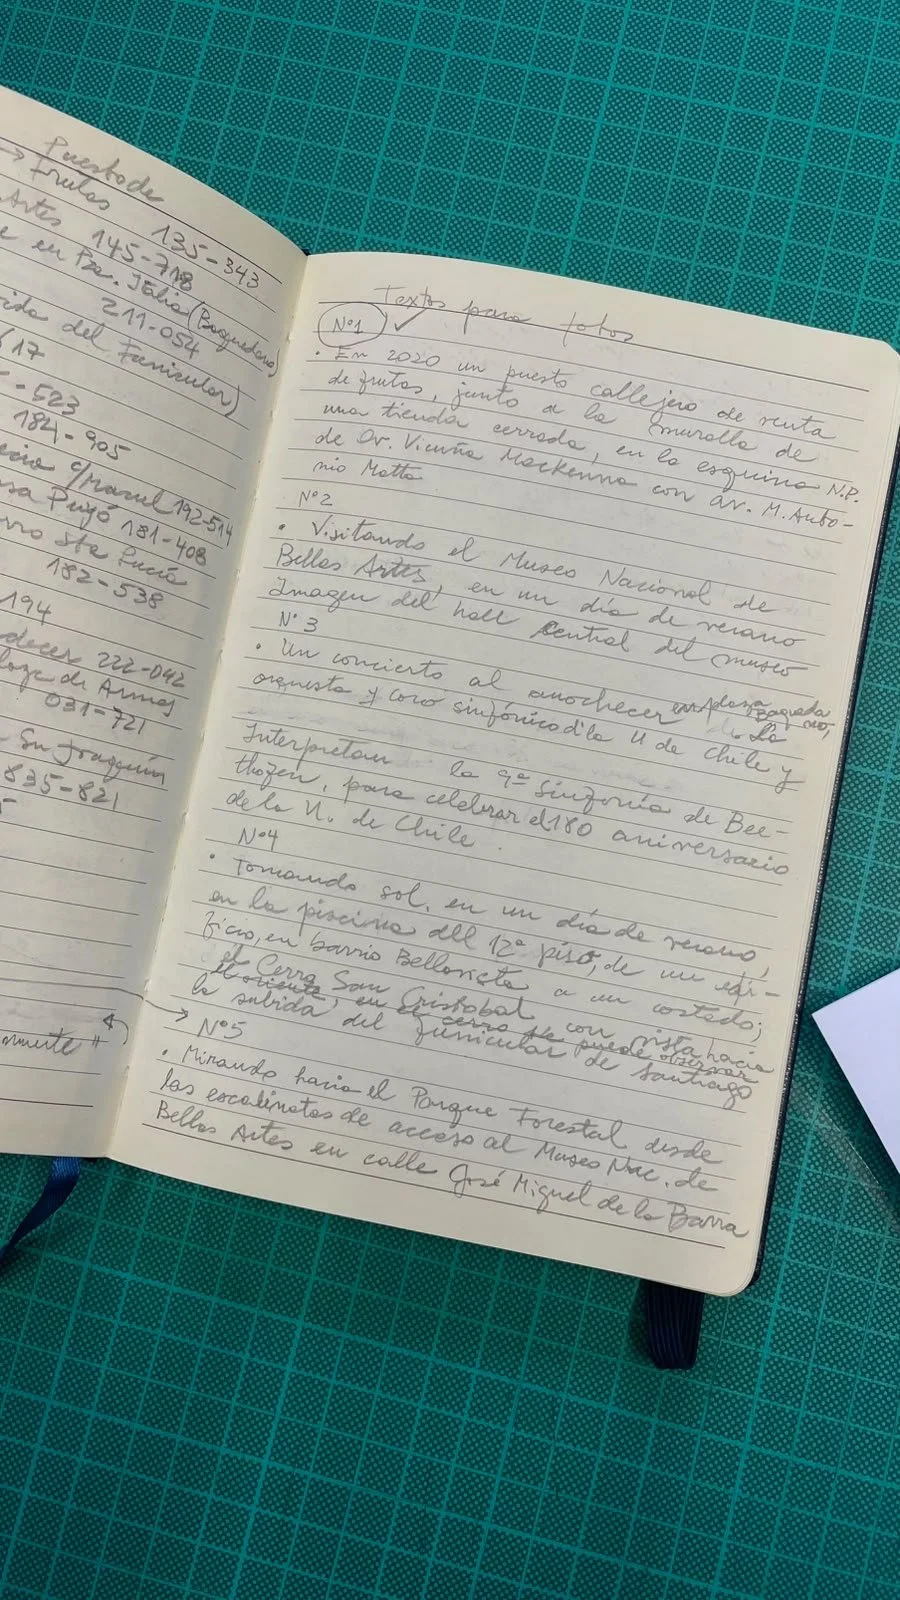 Puesto de
→ Frutas 135-343
Artes 145-718
e en Pza. Italia (Baquedano)
211-054
ida del Funicular)
17
.523
184-905
c/Marcel 192-514
181-408
rro Sta Lucía
182-538
194
decer 222-042
de Armas
031-721
Sn Joaquín
835-821
ormente"
Textos para fotos
Nº1 ✓
• En 2020 un puesto callejero de venta
de frutas, junto a la muralla de
una tienda cerrada, en la esquina N.P.
de Av. Vicuña Mackenna con av. M. Anto-
nio Matta
Nº2
• Visitando el Museo Nacional de
Bellas Artes, en un día de verano
Imagen del hall central del museo
Nº3
• Un concierto al anochecer en plaza Baquedano,
orquesta y coro sinfónico d'la U de Chile y
Interpretan la 9ª sinfonía de Bee-
thofen, para celebrar el 180 aniversario
de la U. de Chile
Nº4
• Tomando sol, en un día de verano,
en la piscina del 12º piso, de un edi-
ficio, en barrio Bellavista a un costado;
el Cerro San Cristobal con vista hacia
el oriente, en el cerro se puede observar
la subida del funicular de Santiago
→ Nº5
• Mirando hacia el Parque Forestal desde
las escalinatas de acceso al Museo Nac. de
Bellas Artes en calle José Miguel de la Barra